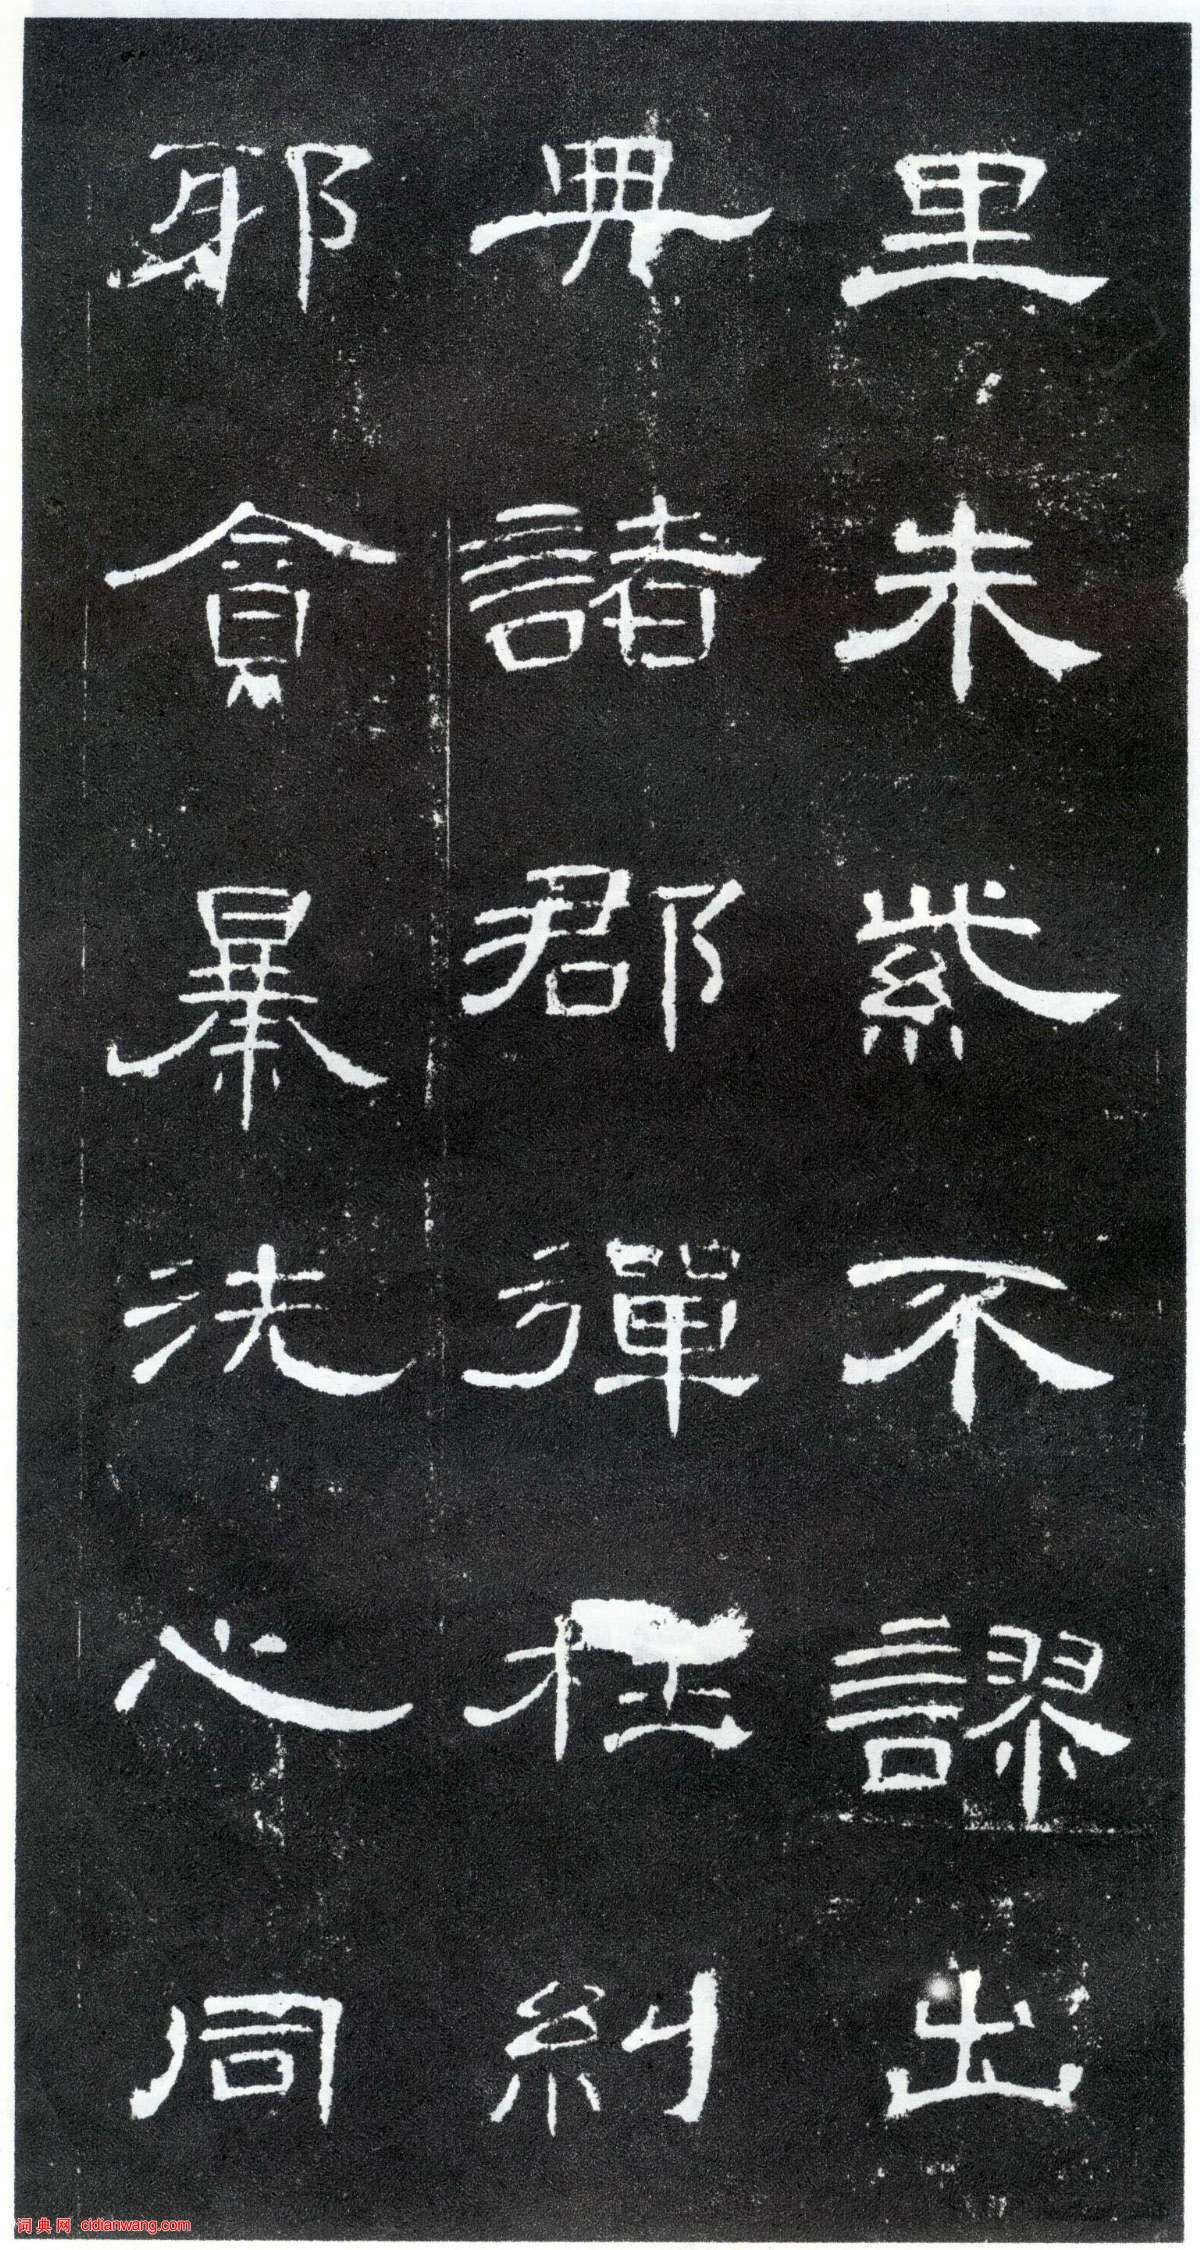 里朱紫不謬出
典諸郡彈枉糾
邪貪暴洗心同
词典网 cidianwang.com